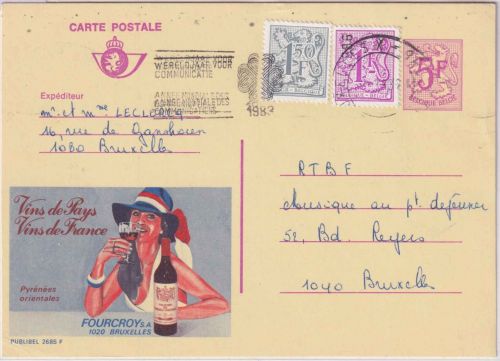 CARTE POSTALE
WERELDJAAR VOOR
COMMUNICATIE
ANNEE MONDIALE DES
1983
1,50 F
1F
5F
BELGIQUE-BELGIË
Expéditeur
mr et mme LECLERCQ
16, rue de Ganshoren
1080 Bruxelles
RTBF
Musique au pt. déjeuner
52, Bd. Reyers
1040 Bruxelles
Vins de Pays
Vins de France
Pyrénées
orientales
FOURCROY S.A
1020 BRUXELLES
PUBLIBEL 2685 F